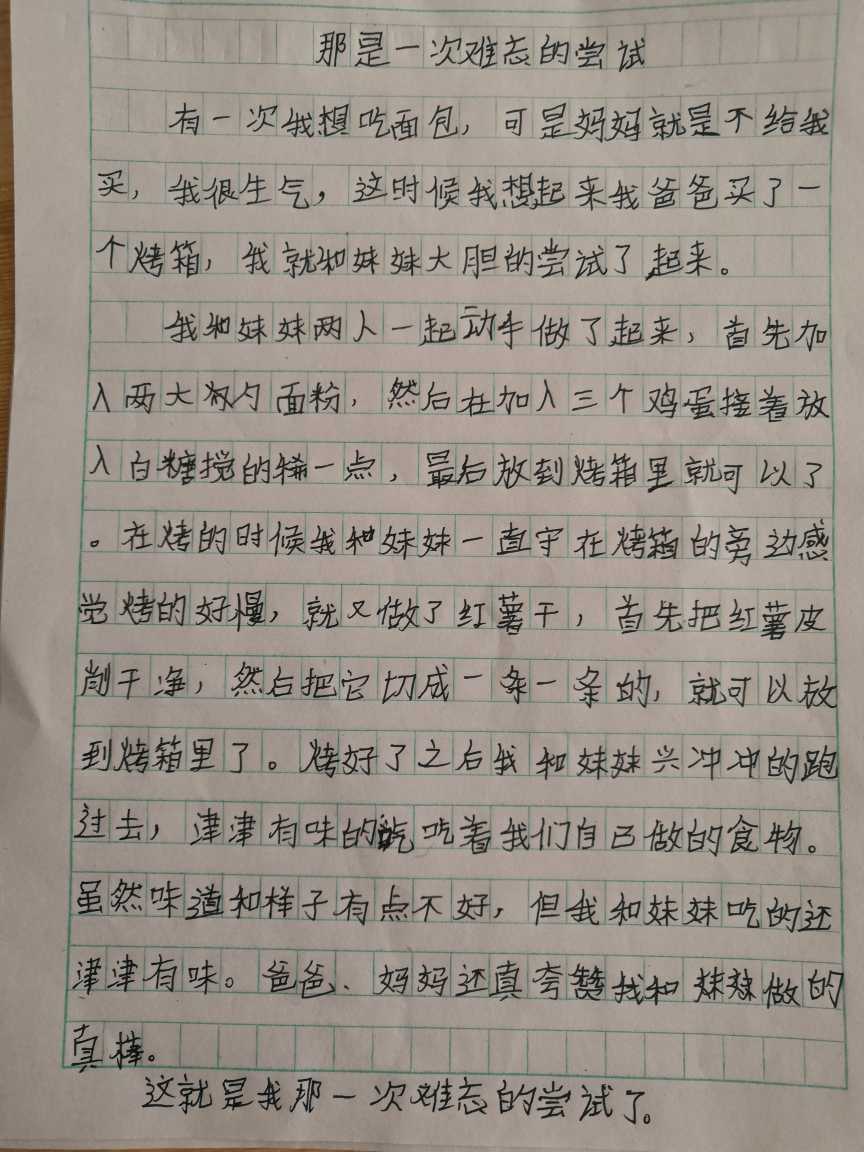 那是一次难忘的尝试
有一次我想吃面包，可是妈妈就是不给我
买，我很生气，这时候我想起来我爸爸买了一
个烤箱，我就和妹妹大胆的尝试了起来。
我和妹妹两人一起动手做了起来，首先加
入两大勺面粉，然后在加入三个鸡蛋接着放
入白糖搅的稀一点，最后放到烤箱里就可以了
。在烤的时候我和妹妹一直守在烤箱的旁边感
觉烤的好慢，就又做了红薯干，首先把红薯皮
削干净，然后把它切成一条一条的，就可以放
到烤箱里了。烤好了之后我和妹妹兴冲冲的跑
过去，津津有味的吃着我们自己做的食物。
虽然味道和样子有点不好，但我和妹妹吃的还
津津有味。爸爸、妈妈还真夸赞我和妹妹做的
真棒。
这就是我那一次难忘的尝试了。